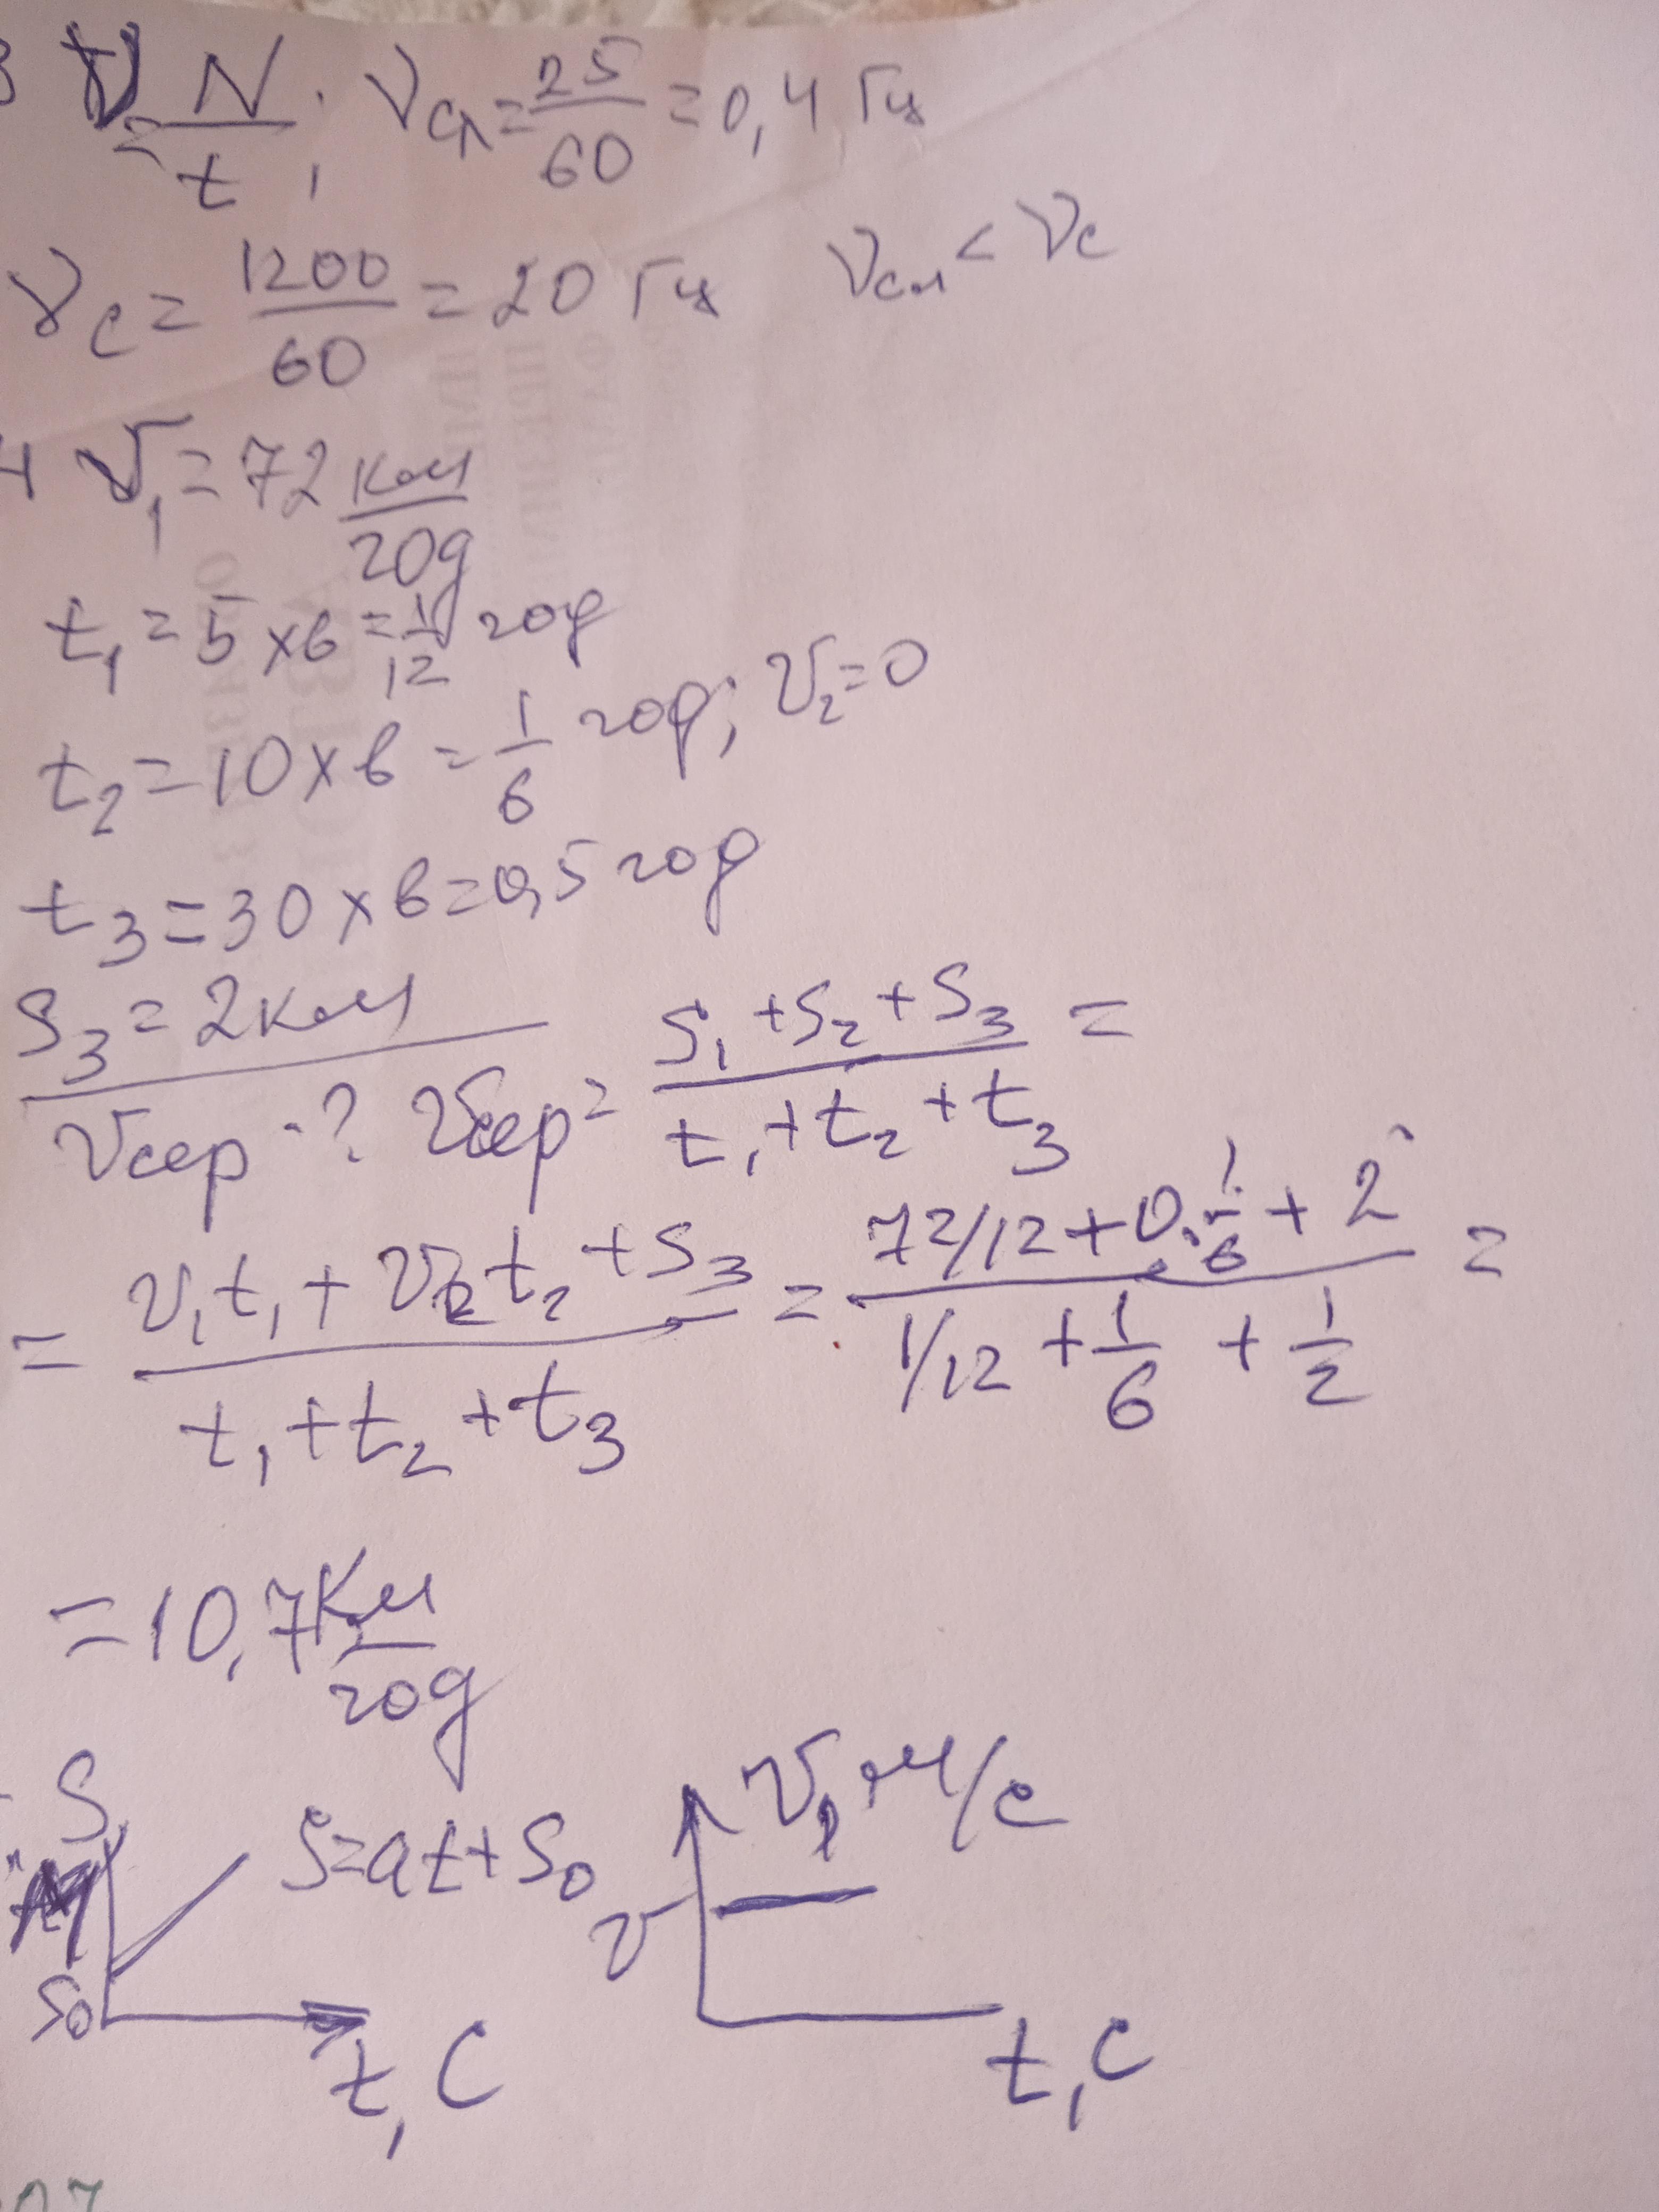 3 ν = N/t; νсл = 25/60 = 0,4 Гц
νс = 1200/60 = 20 Гц νсл < νс
4 V₁ = 72 км/год
t₁ = 5 хв = 1/12 год
t₂ = 10 хв = 1/6 год; V₂ = 0
t₃ = 30 хв = 0,5 год
S₃ = 2 км
Vсер - ? Vсер = (S₁ + S₂ + S₃)/(t₁ + t₂ + t₃) =
= (V₁t₁ + V₂t₂ + S₃)/(t₁ + t₂ + t₃) = (72/12 + 0·1/6 + 2)/(1/12 + 1/6 + 1/2) =
= 10,7 км/год
S, м S = at + S₀ V, м/с
S₀ V
t, С t, С
07